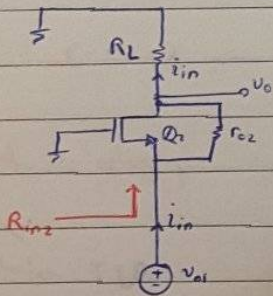 R_L
i_in
v_o
Q_2
r_o2
R_in2
i_in
+
-
v_o1